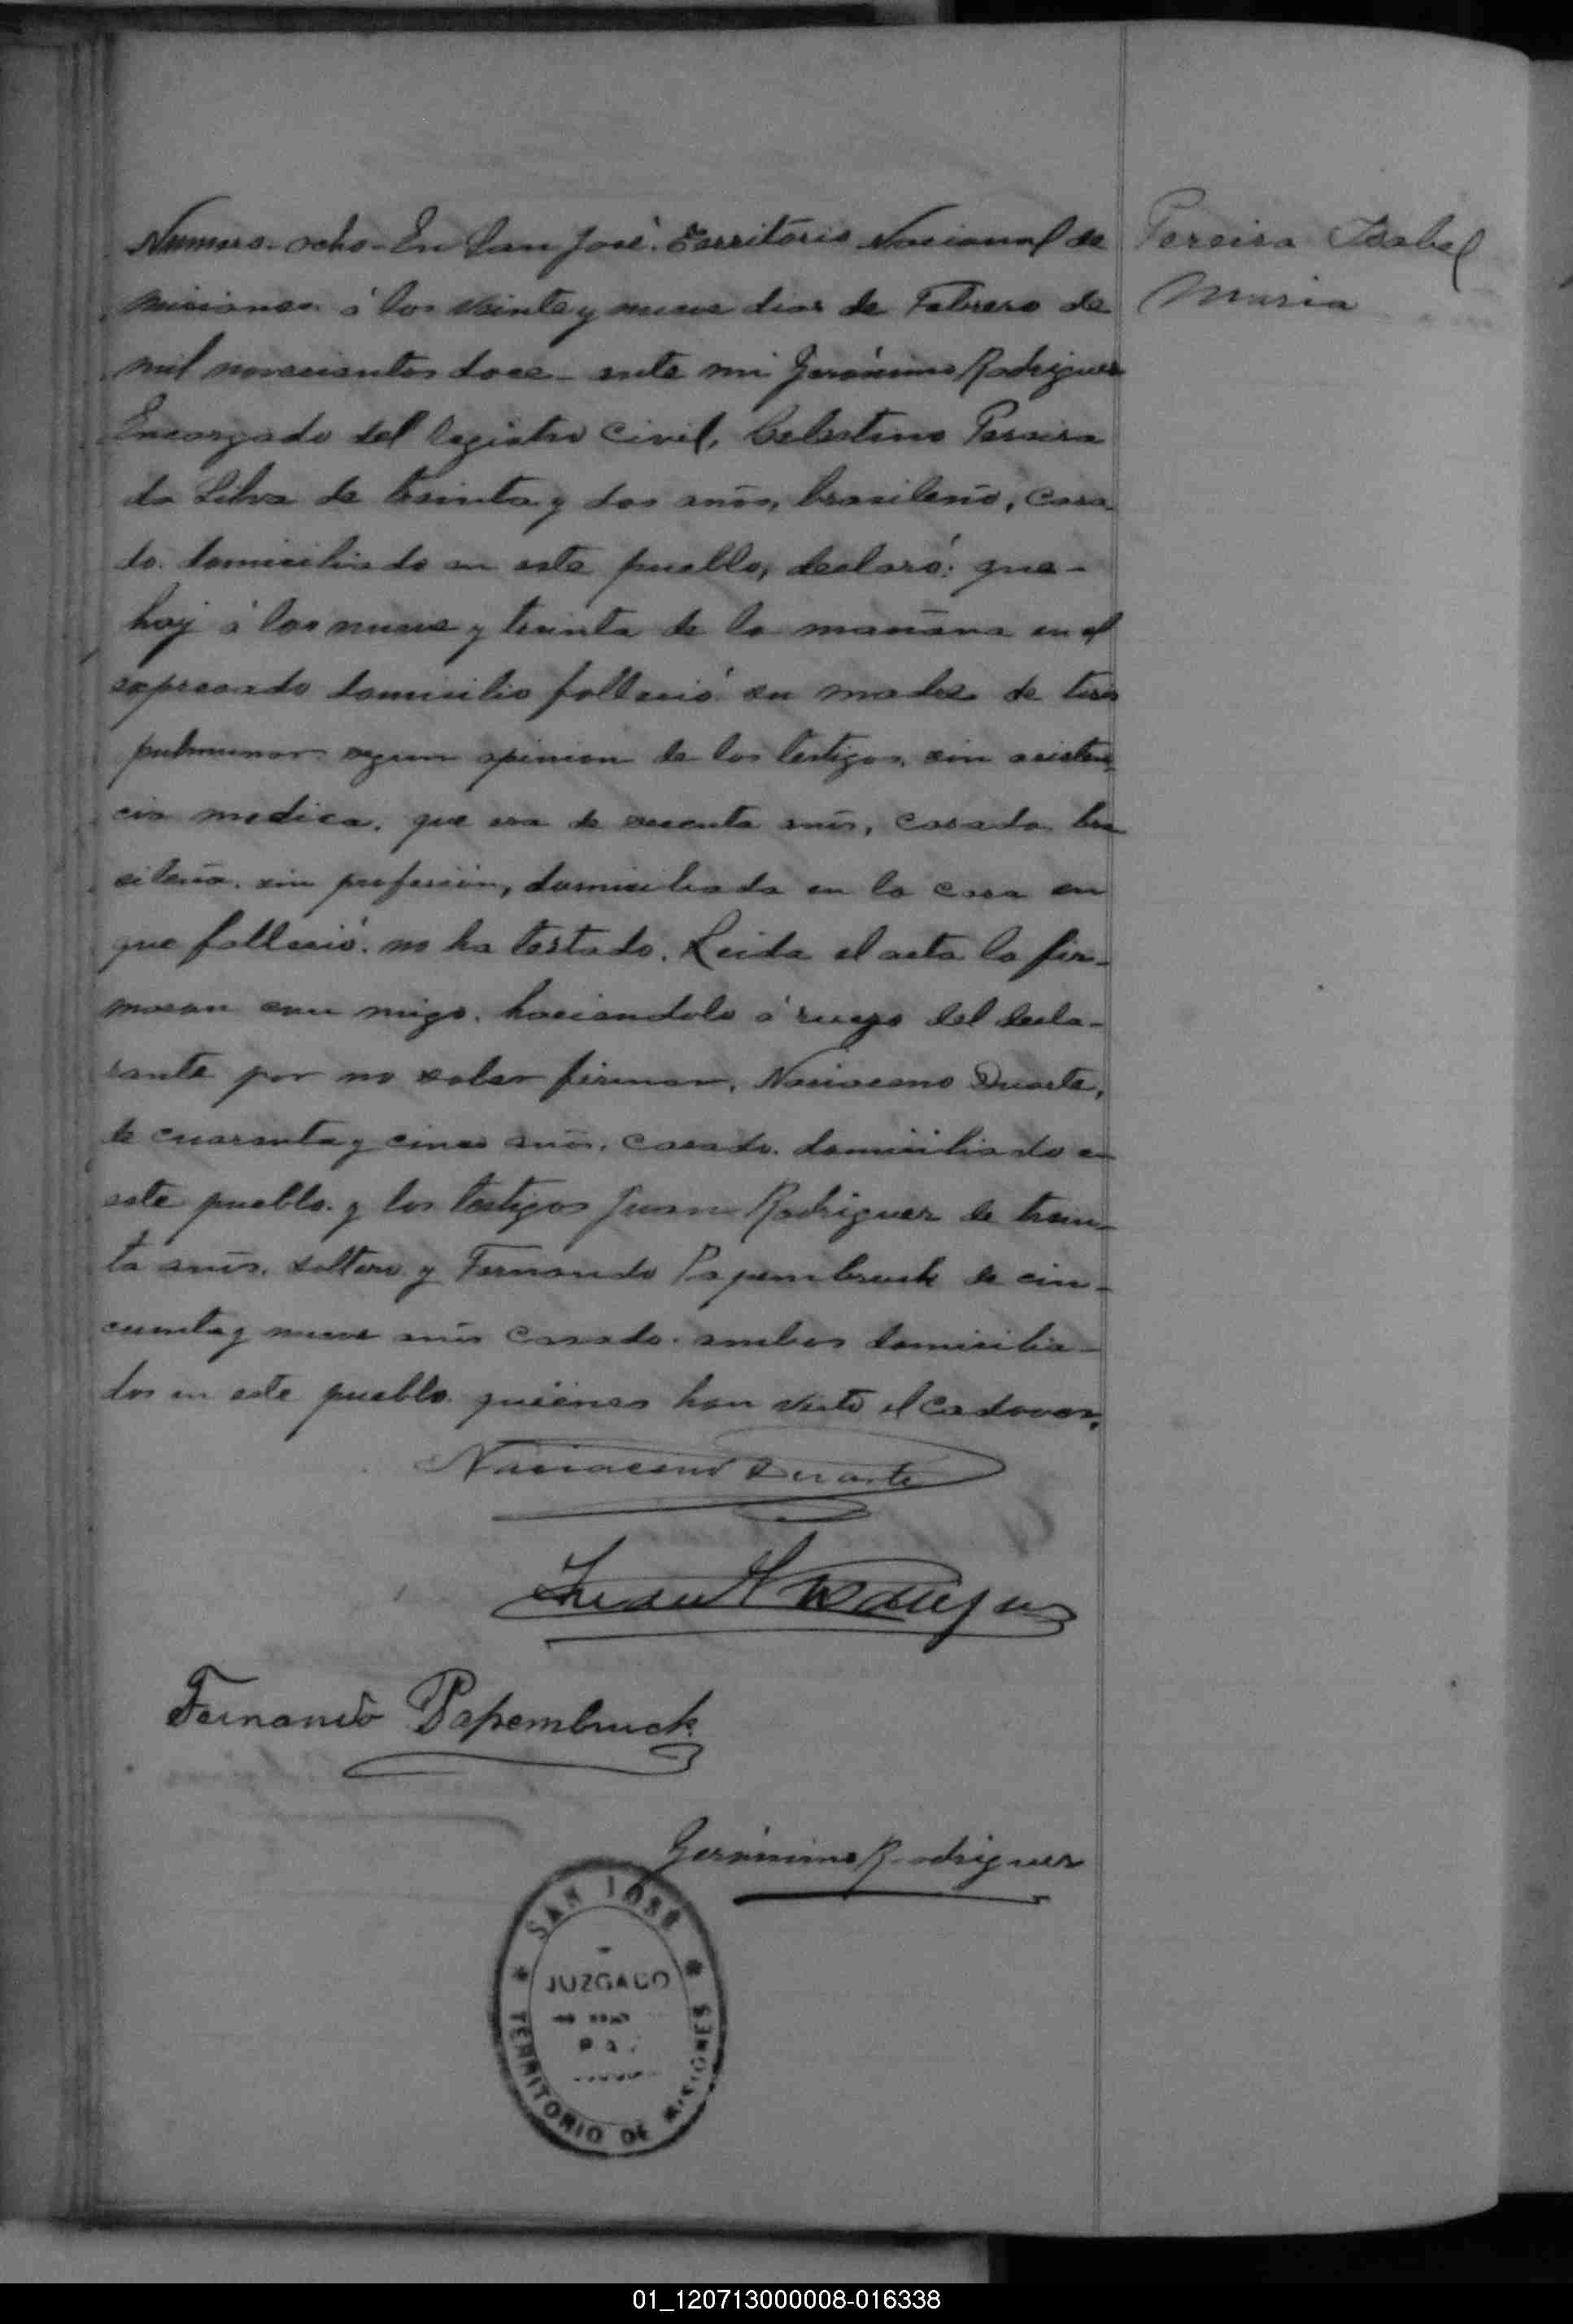 Numero ocho - En San José. Territorio Nacional de
Misiones á los veinte y nueve dias de Febrero de
mil novecientos doce - ante mi Gerónimo Rodriguez
Encargado del Registro Civil, Celestino Pereira
da Silva de treinta y dos años, brasileño, casa-
do. domiciliado en este pueblo, declaró: que -
hoy á las nueve y treinta de la mañana en el
expresado domicilio falleció su madre de tisis
pulmunar segun opinion de los testigos, sin asisten-
cia medica. que era de años, casada. bra
sileña. sin profesión, domiciliada en la casa en
que falleció. no ha testado. Leida el acta la fir-
maran con migo. haciendolo á ruego del decla-
rante por no saber firmar, Naciaceno Duarte,
de cuarenta y cinco años. casado. domiciliado en
este pueblo. y los testigos Juan Rodriguez de trein-
ta años. soltero y Fernando Papembruck de cin-
cuenta y nueve años casado. ambos domicilia-
dos en este pueblo. quienes han visto el cadaver.
Pereira Isabel
Maria
Naciaceno Duarte
Juan Rodriguez
Fernando Papembruck
Gerónimo Rodriguez
SAN JOSÉ
JUZGADO
TERRITORIO DE MISIONES
01_120713000008-016338